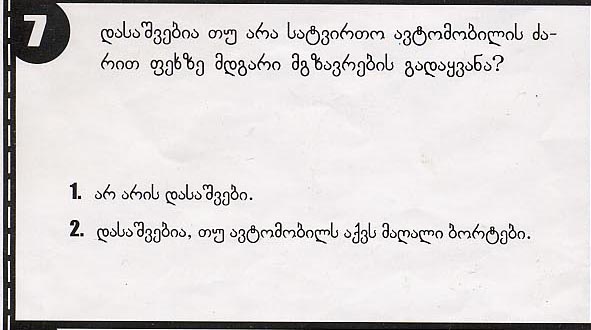 7
დასაშვებია თუ არა სატვირთო ავტომობილის ძა-
რით ფეხზე მდგარი მგზავრების გადაყვანა?
1. არ არის დასაშვები.
2. დასაშვებია, თუ ავტომობილს აქვს მაღალი ბორტები.